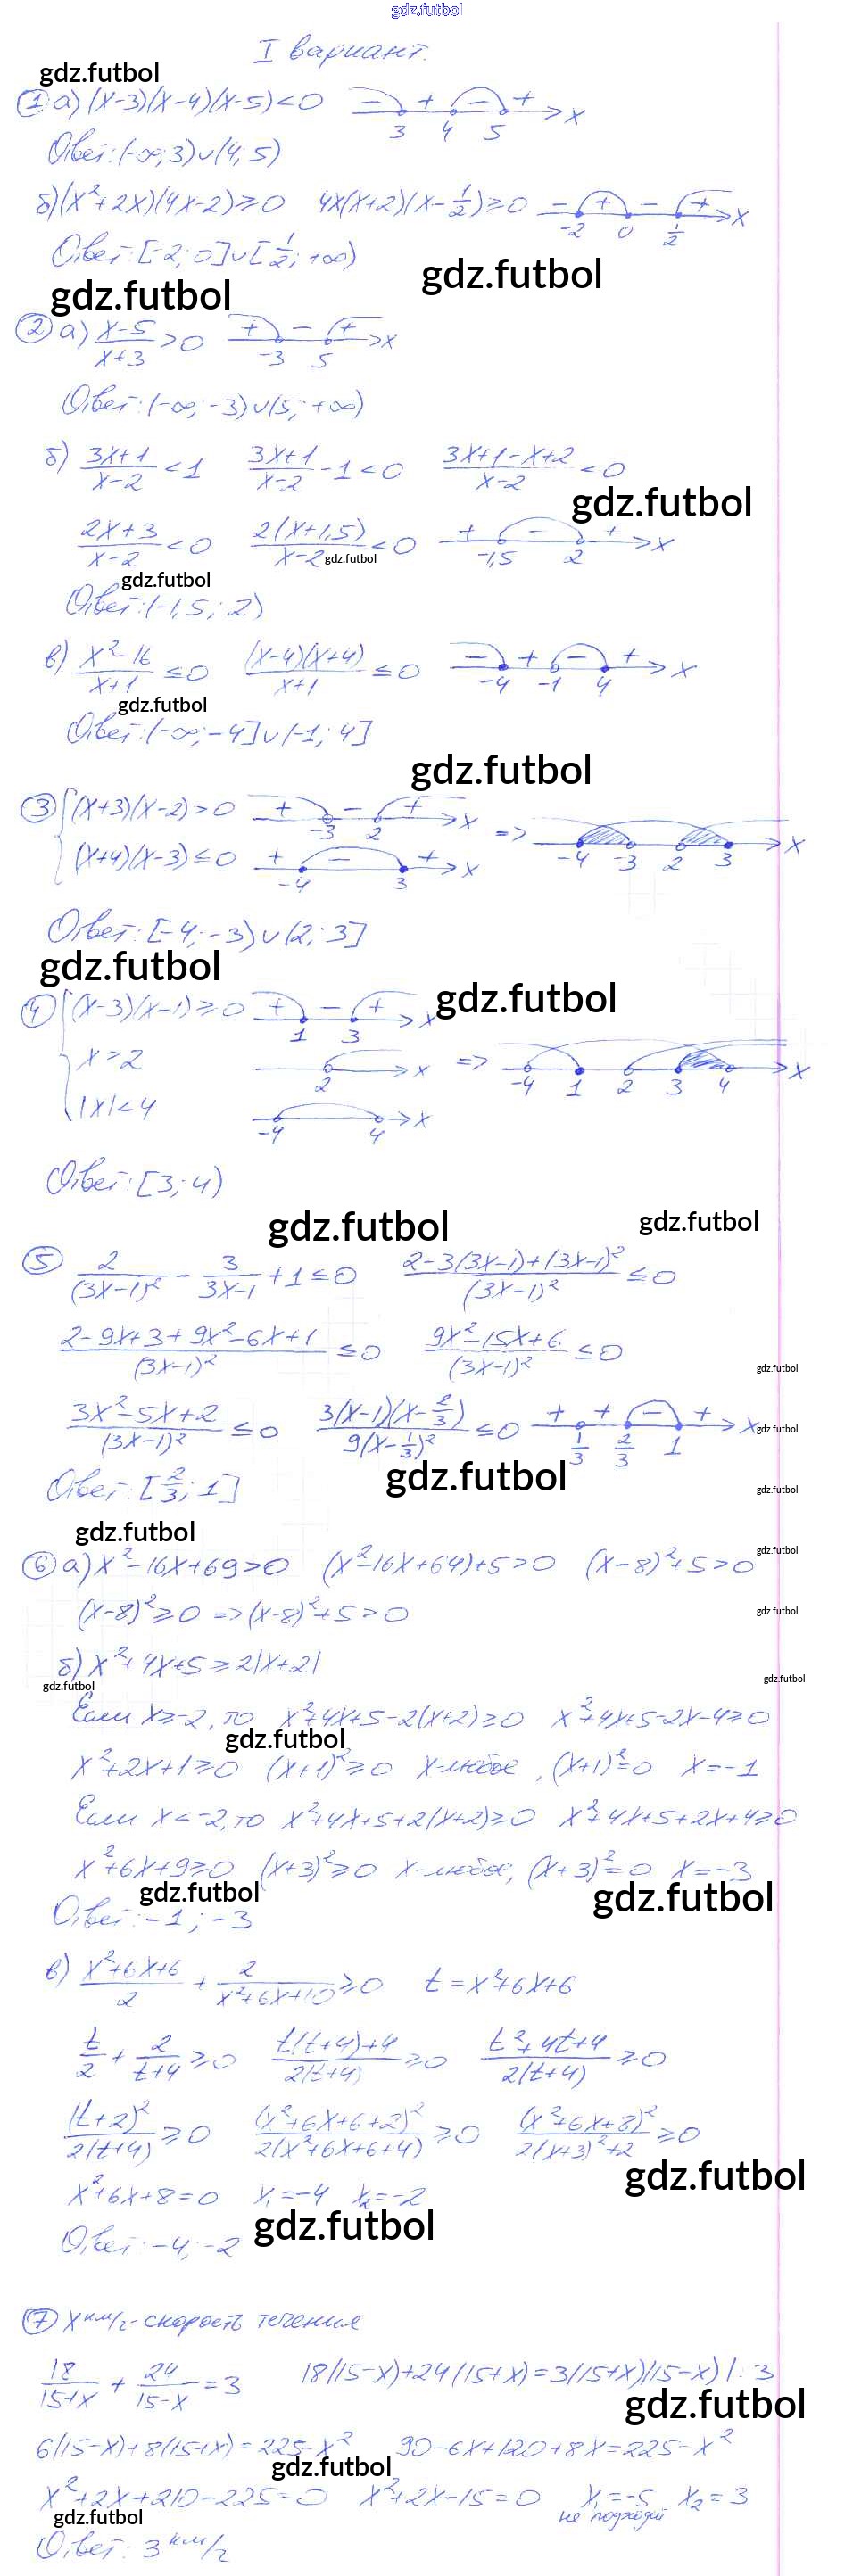 gdz.futbol
I вариант.
gdz.futbol
① а) (x-3)(x-4)(x-5)<0 - + - + 3 4 5 x
Ответ: (-∞; 3)∪(4; 5)
б) (x²+2x)(4x-2)≥0 4x(x+2)(x-1/2)≥0 - + - + -2 0 1/2 x
Ответ: [-2; 0]∪[1/2; +∞)
gdz.futbol
gdz.futbol
② а) (x-5)/(x+3)>0 + - + -3 5 x
Ответ: (-∞; -3)∪(5; +∞)
б) (3x+1)/(x-2)<1 (3x+1)/(x-2)-1<0 (3x+1-x+2)/(x-2)<0
gdz.futbol
(2x+3)/(x-2)<0 2(x+1,5)/(x-2)<0 + - + -1,5 2 x
gdz.futbol
gdz.futbol
Ответ: (-1,5; 2)
в) (x²-16)/(x+1)≤0 (x-4)(x+4)/(x+1)≤0 - + - + -4 -1 4 x
gdz.futbol
Ответ: (-∞; -4]∪(-1; 4]
gdz.futbol
③ { (x+3)(x-2)>0 + - + -3 2 x
(x+4)(x-3)≤0 + - + -4 3 x => -4 -3 2 3 x
Ответ: [-4; -3)∪(2; 3]
gdz.futbol
gdz.futbol
④ { (x-3)(x-1)≥0 + - + 1 3 x
x>2 2 x => -4 1 2 3 4 x
|x|<4 -4 4 x
Ответ: [3; 4)
gdz.futbol
gdz.futbol
⑤ 2/(3x-1)² - 3/(3x-1) +1≤0 (2-3(3x-1)+(3x-1)²)/(3x-1)² ≤0
(2-9x+3+9x²-6x+1)/(3x-1)² ≤0 (9x²-15x+6)/(3x-1)² ≤0
gdz.futbol
(3x²-5x+2)/(3x-1)² ≤0 3(x-1)(x-2/3)/9(x-1/3)² ≤0 + + - + 1/3 2/3 1 x
gdz.futbol
gdz.futbol
Ответ: [2/3; 1]
gdz.futbol
gdz.futbol
gdz.futbol
⑥ а) x²-16x+69>0 (x²-16x+64)+5>0 (x-8)²+5>0
(x-8)²≥0 => (x-8)²+5>0
gdz.futbol
б) x²+4x+5≥2|x+2|
gdz.futbol
gdz.futbol
Если x≥-2, то x²+4x+5-2(x+2)≥0 x²+4x+5-2x-4≥0
gdz.futbol
x²+2x+1≥0 (x+1)²≥0 x-любое, (x+1)²=0 x=-1
Если x<-2, то x²+4x+5+2(x+2)≥0 x²+4x+5+2x+4≥0
x²+6x+9≥0 (x+3)²≥0 x-любое; (x+3)²=0 x=-3
gdz.futbol
gdz.futbol
Ответ: -1; -3
в) (x²+6x+6)/2 + 2/(x²+6x+10) ≥0 t=x²+6x+6
t/2 + 2/(t+4) ≥0 (t(t+4)+4)/2(t+4) ≥0 (t²+4t+4)/2(t+4) ≥0
(t+2)²/2(t+4) ≥0 (x²+6x+6+2)²/2(x²+6x+6+4) ≥0 (x²+6x+8)²/2(x+3)²+2 ≥0
gdz.futbol
x²+6x+8=0 x₁=-4 x₂=-2
gdz.futbol
Ответ: -4; -2
⑦ x км/г - скорость течения
18/(15+x) + 24/(15-x) = 3 18(15-x)+24(15+x)=3(15+x)(15-x) | : 3
gdz.futbol
6(15-x)+8(15+x)=225-x² 90-6x+120+8x=225-x²
gdz.futbol
x²+2x+210-225=0 x²+2x-15=0 x₁=-5 x₂=3
не подходит
gdz.futbol
Ответ: 3 км/г